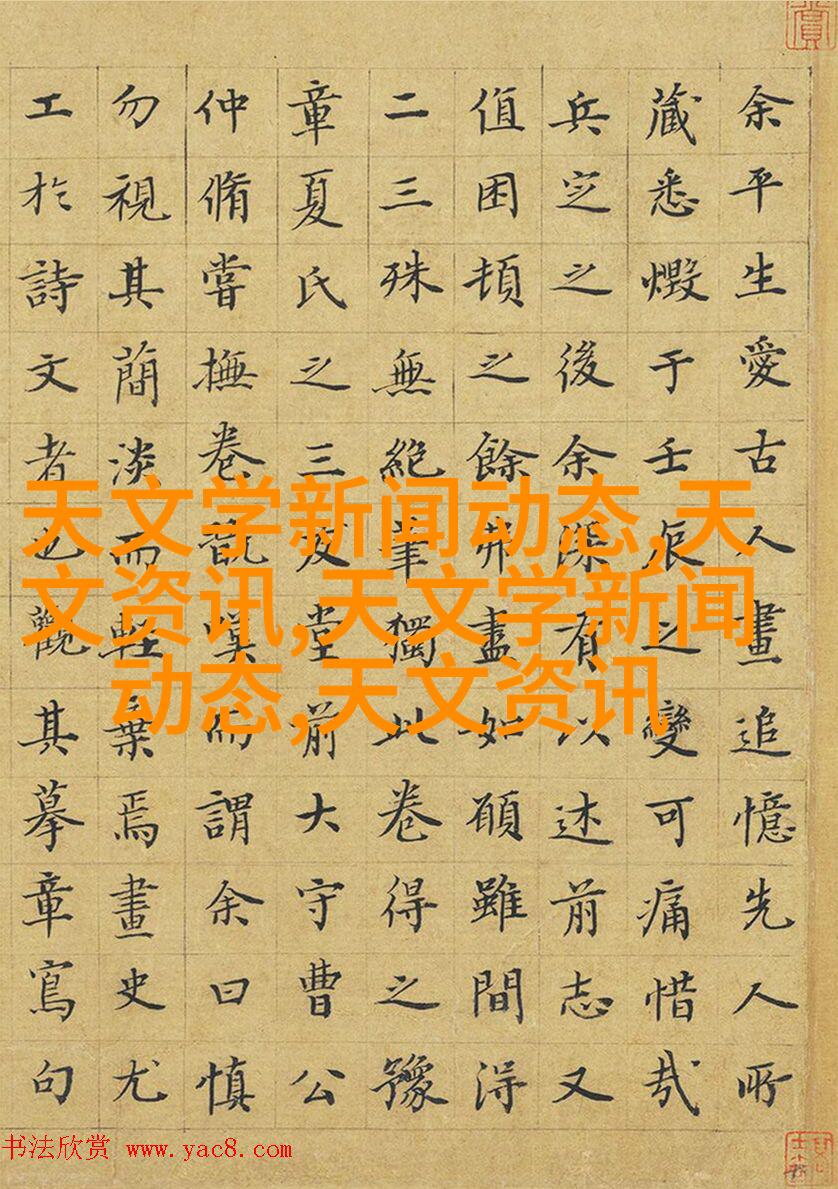 余平生愛古人畫追憶先人所
藏悉燬于壬辰之變可痛惜哉
兵定之後余深有以述前志又
值困頓之餘盡如願雖間得
二三殊無絕筆獨此卷得之豫
章夏氏之三友堂前大守曹公
仲脩嘗撫卷嘆而謂余曰慎
勿視其簡淡而輕棄焉畫史尤
工於詩文者也觀其摹章寫句
天文学新闻动态,天
文资讯,天文学新闻
动态,天文资讯
书法欣赏 www.yac8.com